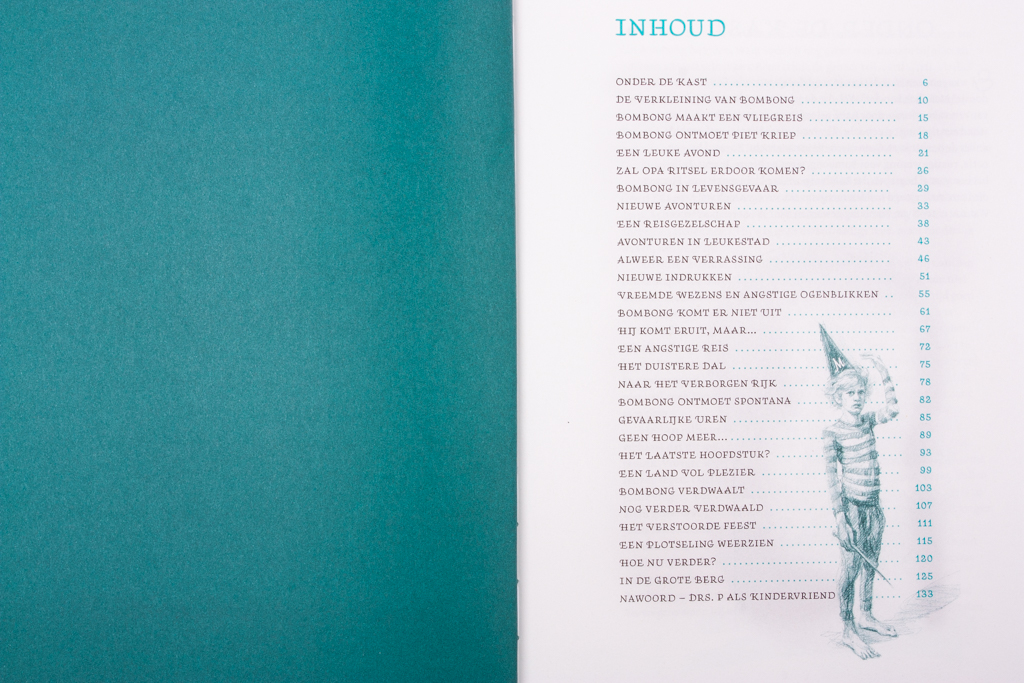 INHOUD
ONDER DE KAST ................................ 6
DE VERKLEINING VAN BOMBONG ................ 10
BOMBONG MAAKT EEN VLIEGREIS ............... 15
BOMBONG ONTMOET PIET KRIEP ................ 18
EEN LEUKE AVOND ............................. 21
ZAL OPA RITSEL ERDOOR KOMEN? .............. 26
BOMBONG IN LEVENSGEVAAR ................... 29
NIEUWE AVONTUREN ........................... 33
EEN REISGEZELSCHAP .......................... 38
AVONTUREN IN LEUKESTAD .................... 43
ALWEER EEN VERRASSING ...................... 46
NIEUWE INDRUKKEN ........................... 51
VREEMDE WEZENS EN ANGSTIGE OGENBLIKKEN .. 55
BOMBONG KOMT ER NIET UIT ................... 61
HIJ KOMT ERUIT, MAAR... ....................... 67
EEN ANGSTIGE REIS ............................ 72
HET DUISTERE DAL ............................ 75
NAAR HET VERBORGEN RIJK .................... 78
BOMBONG ONTMOET SPONTANA ................. 82
GEVAARLIJKE UREN ............................ 85
GEEN HOOP MEER... ............................ 89
HET LAATSTE HOOFDSTUK? ..................... 93
EEN LAND VOL PLEZIER ........................ 99
BOMBONG VERDWAALT ......................... 103
NOG VERDER VERDWAALD ...................... 107
HET VERSTOORDE FEEST ........................ 111
EEN PLOTSELING WEERZIEN .................... 115
HOE NU VERDER? .............................. 120
IN DE GROTE BERG ............................. 125
NAWOORD – DRS. P ALS KINDERVRIEND ......... 133